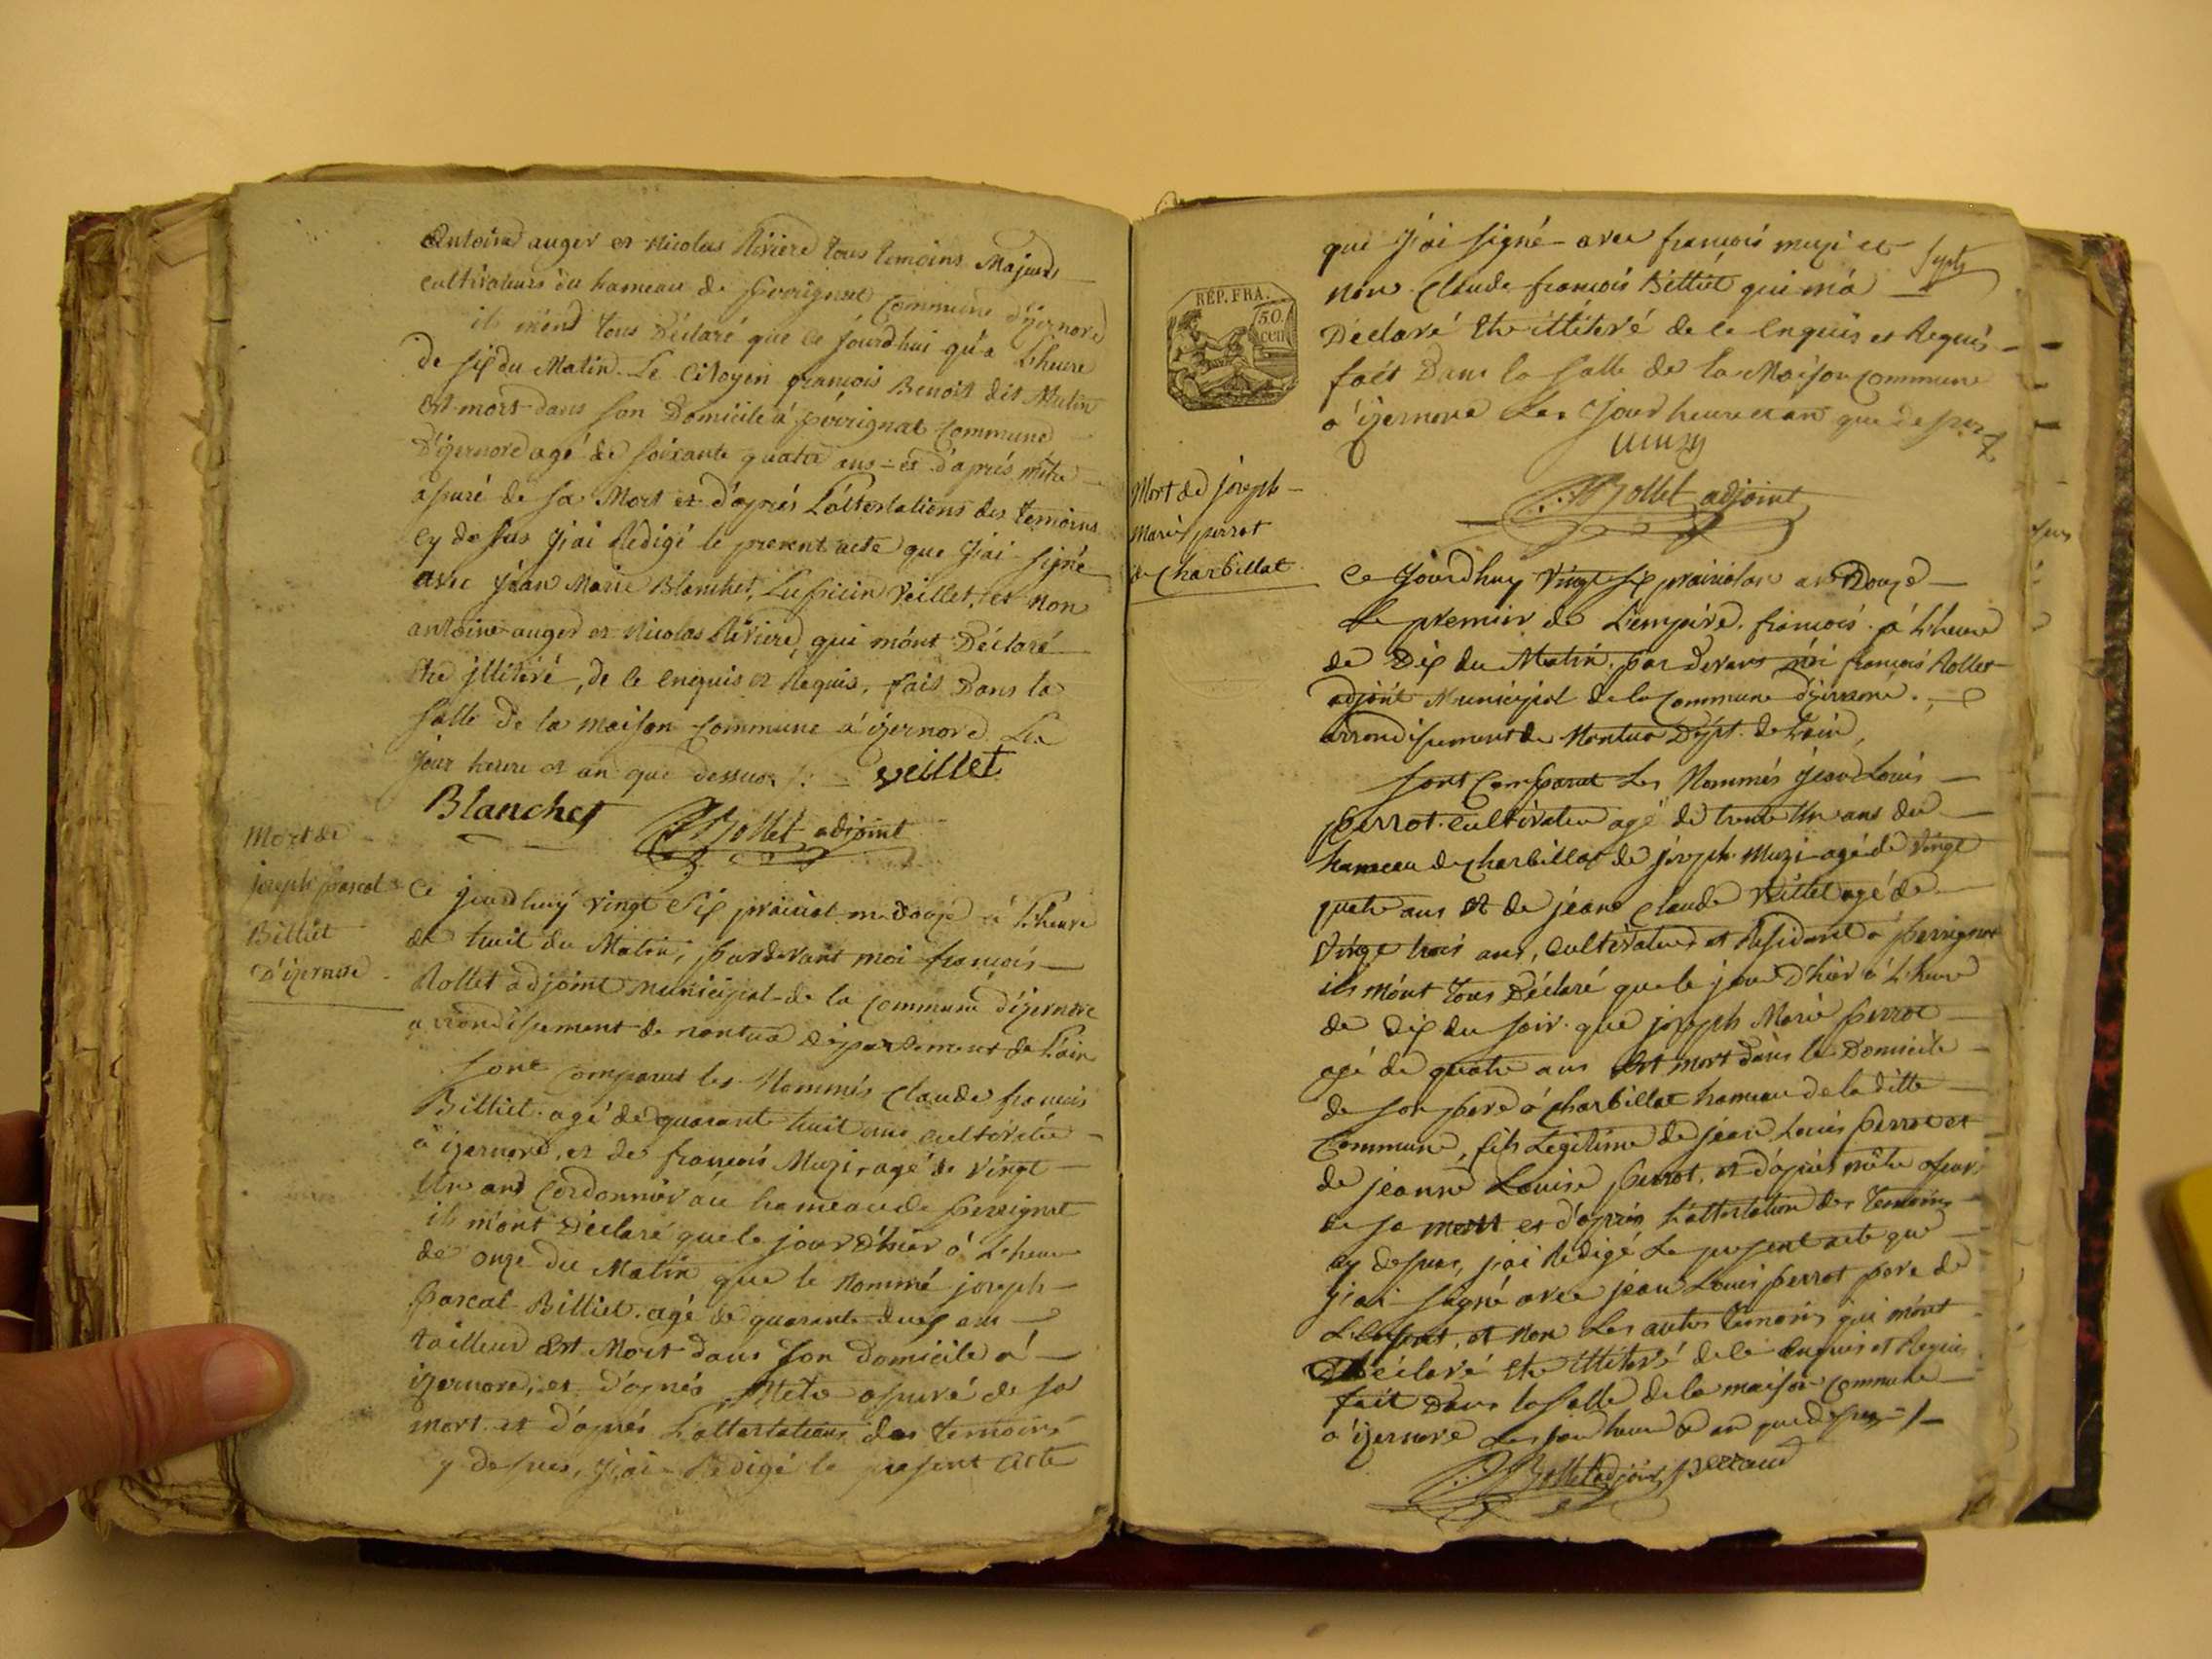 Antoine auger et Nicolas Riviere tous temoins Majeurs
cultivateurs du hameau de perrignat Commune d'izernore
ils m'ont tous Déclaré que ce jourdhui qu'a L'heure
de six du Matin. Le Citoyen françois Benoit dit Mutin
est mort dans son Domicile à perrignat Commune
D'izernore agé de soixante quatre ans et d'aprés m'etre
assuré de sa Mort et d'aprés L'attestations des temoins
cy dessus j'ai Rédigé le present acte que j'ai signé
avec jean Marie Blanchet, Veillet, et non
antoine auger et Nicolas Riviere, qui m'ont Déclaré
etre illitéré, de ce enquis et Requis, fait Dans la
salle de la maison commune a izernore Les
jour heure et an que dessus ./. veillet
Blanchet
Rollet adjoint
Mort de
joseph pascal
Billiet
D'izernore
Ce jourdhuy vingt six prairial an douze à L'heure
de huit du Matin, pardevant moi françois
Rollet adjoint municipal de la commune d'izernore
arrondissement de nantua département de L'ain
sont comparus les Nommés Claude françois
Billiet agé de quarante huit ans cultivateur
à izernore, et de françois Muzi, agé de Vingt
Un ans Cordonnier au hameau de perrignat
ils m'ont Déclaré que le jour D'hier à L'heure
de onze du Matin que le Nommé joseph
pascal Billiet agé de quarante deux ans
tailleur est Mort dans son domicile à
izernore, et d'aprés M'etre assuré de sa
mort et d'aprés L'attestations des temoins
cy dessus, j'ai Redigé le present acte
que j'ai signé avec françois muzi et
non Claude françois Billiet qui m'a
Déclaré etre illitéré de ce enquis et Requis
fait Dans la salle de la Maison commune
a izernore Les jour heure et an que dessus
muzy
Rollet adjoint
RÉP. FRA.
50
cen
Mort de joseph
Marie perrot
de Charbillat
Ce jourdhuy Vingt six prairial an Douze
Le premier de L'empire françois à L'heure
de Dix du Matin, par devant moi françois Rollet
adjoint Municipal de la Commune d'izernore
arrondissement de Nantua Dépt. de L'ain
sont Comparut Les Nommés jean Louis
perrot cultivateur agé de trente Un ans du
hameau de Charbillat de joseph Muzi agé de vingt
quatre ans et de jean Claude Veillet agé de
Vingt trois ans, cultivateurs et Residant à perrignat
ils m'ont tous Déclaré que le jour D'hier à L'heure
de dix du soir que joseph Marie perrot
agé de quatre ans est mort dans le Domicile
de son pere à Charbillat hameau de la ditte
Commune, fils Legitime de jean Louis perrot et
de jeanne Louise perrot, et d'aprés m'être assuré
de sa mort et d'aprés L'attestation des temoins
cy dessus, j'ai Redigé Le present acte que
j'ai signé avec jean Louis perrot pere de
L'enfant, et non Les autres temoins qui m'ont
Déclaré etre illitéré de ce enquis et Requis
fait Dans la salle de la maison commune
a izernore Les jour heure et an que dessus ./.
Rollet adjoint perraud